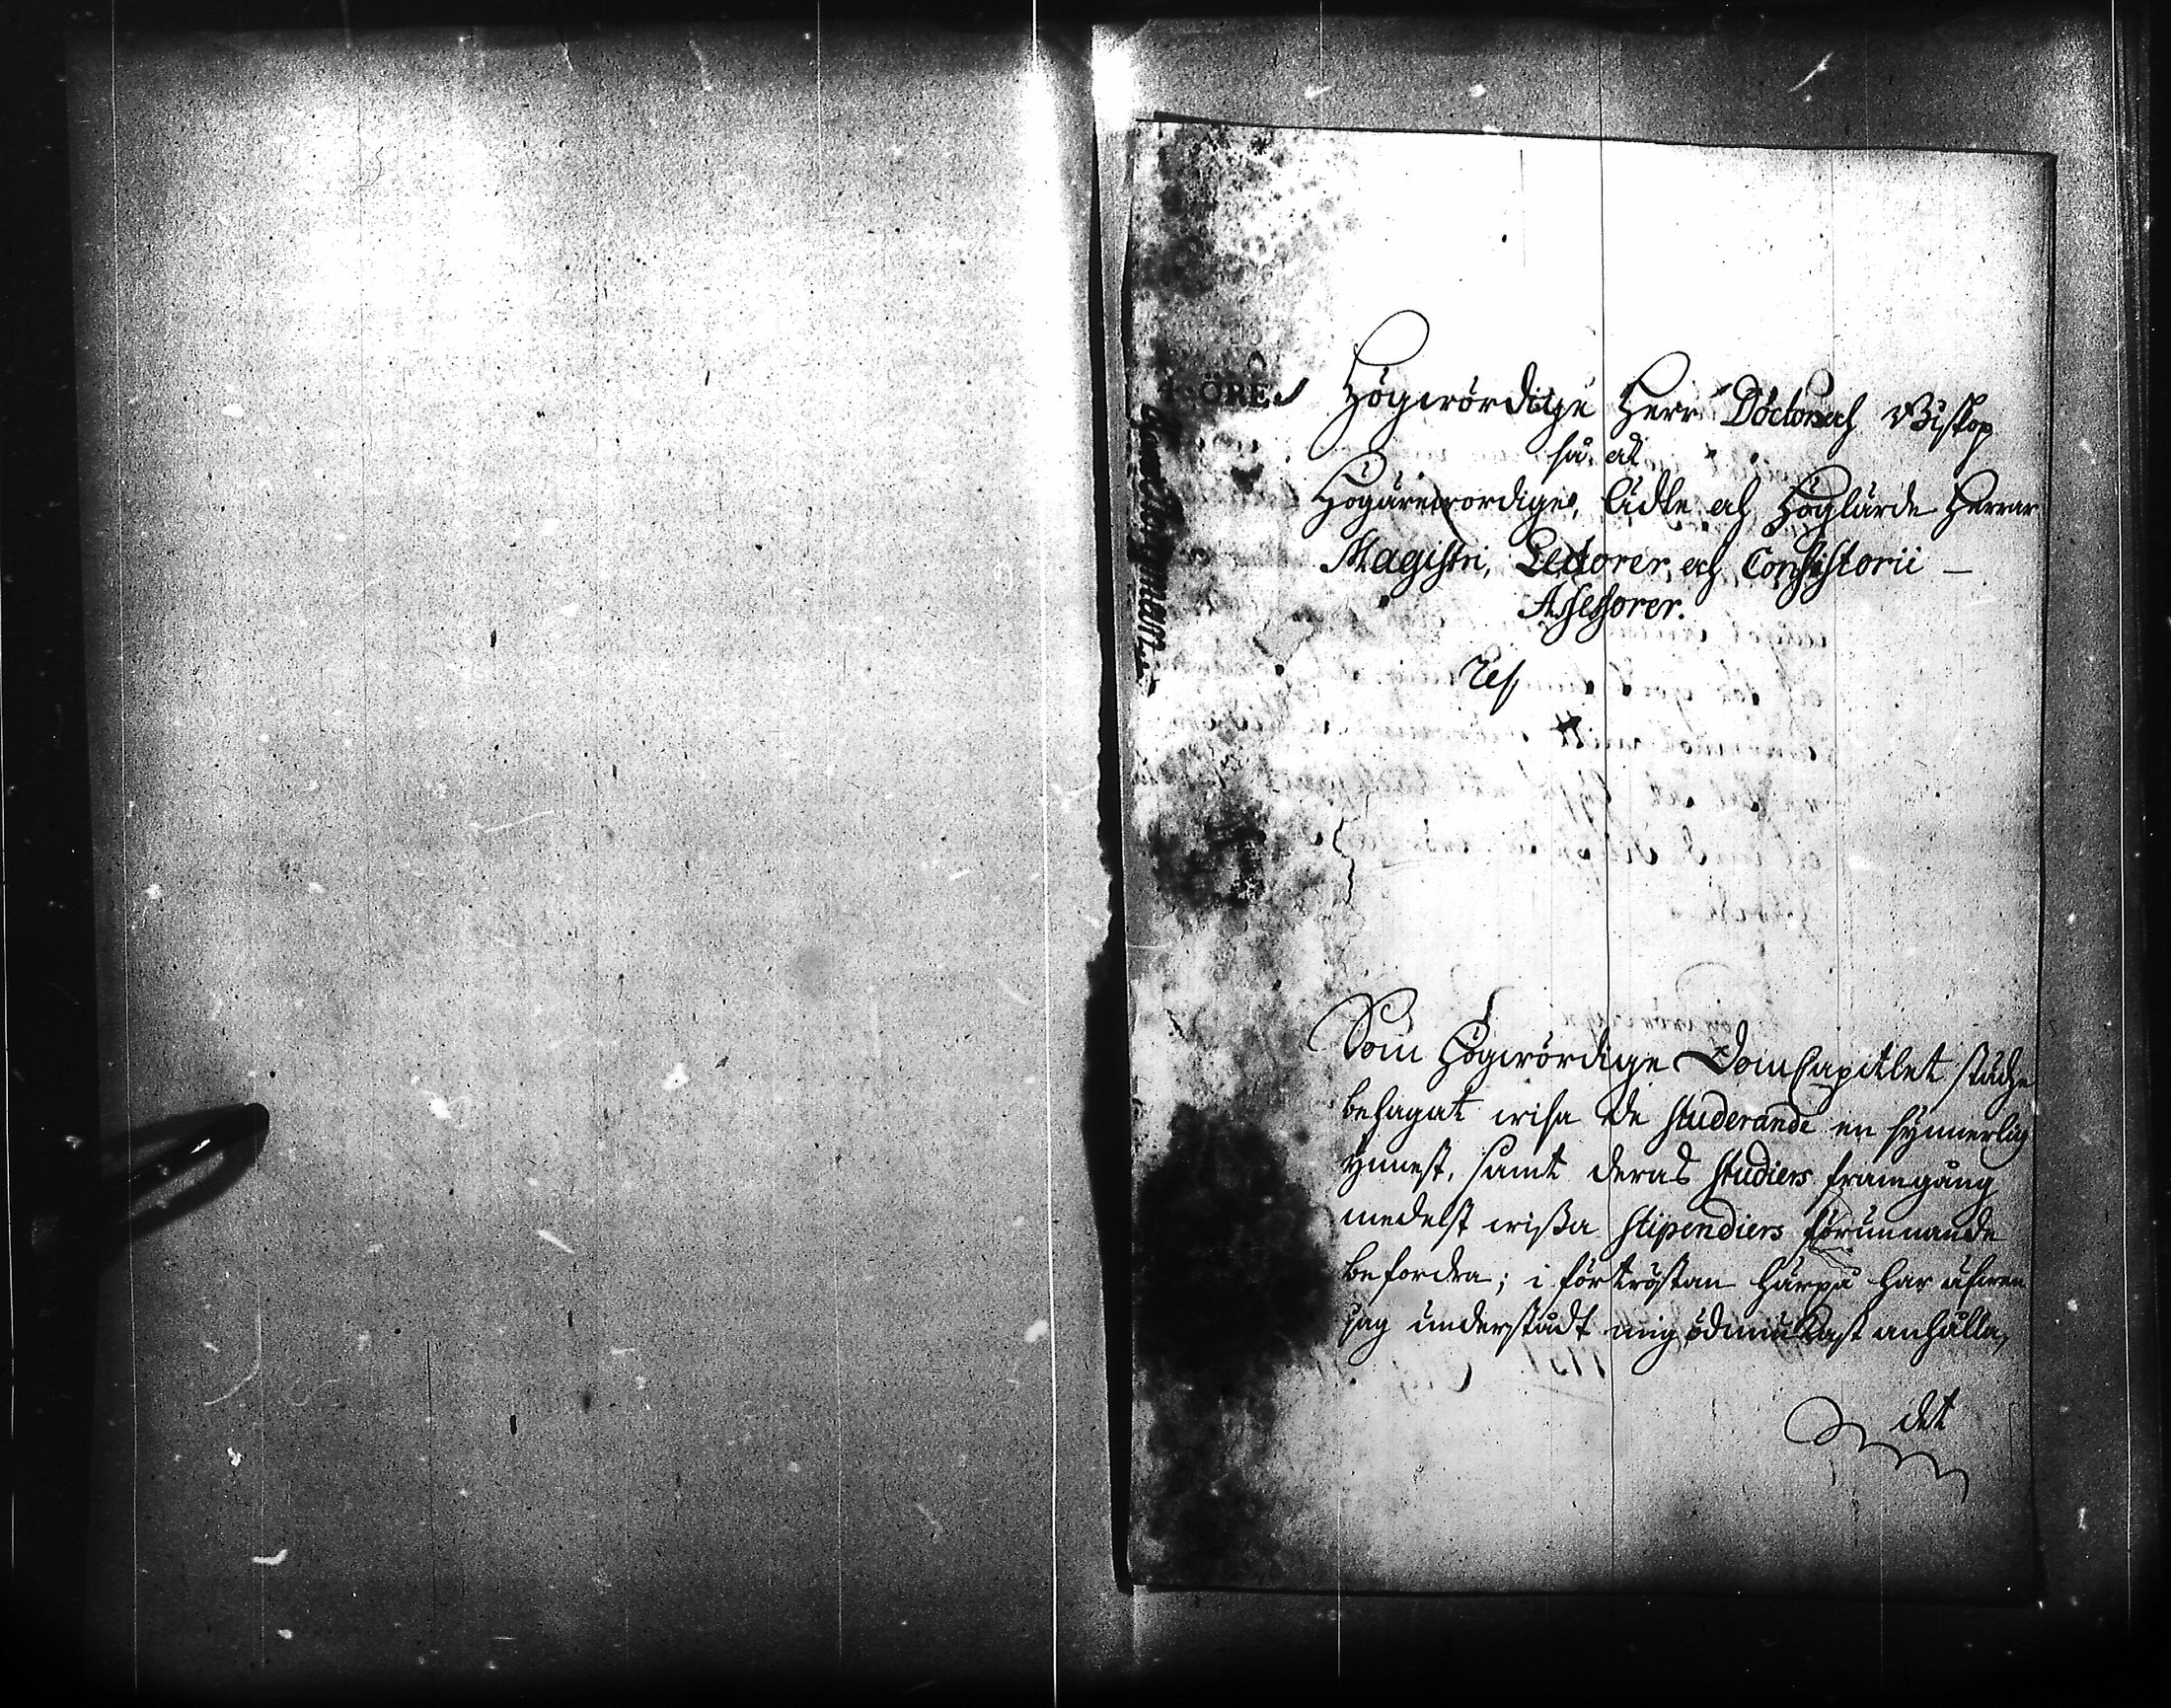 4 ÖRE.
Högwördige Herr Doctor och Biskop
så ock
Högärewördige, Ädle och Höglärde Herrar
Magistri, Lectorer, och Consistorii
Assessorer.
Som Högwördige DomCapitlet städze
behagat wisa de studerande en synnerlig
ynnest, samt deras studiers framgång
medelst wißa stipendiers förunnande
befordra; i förtröstan härpå har äfwen
jag understådt mig ödmiukast anhålla,
det